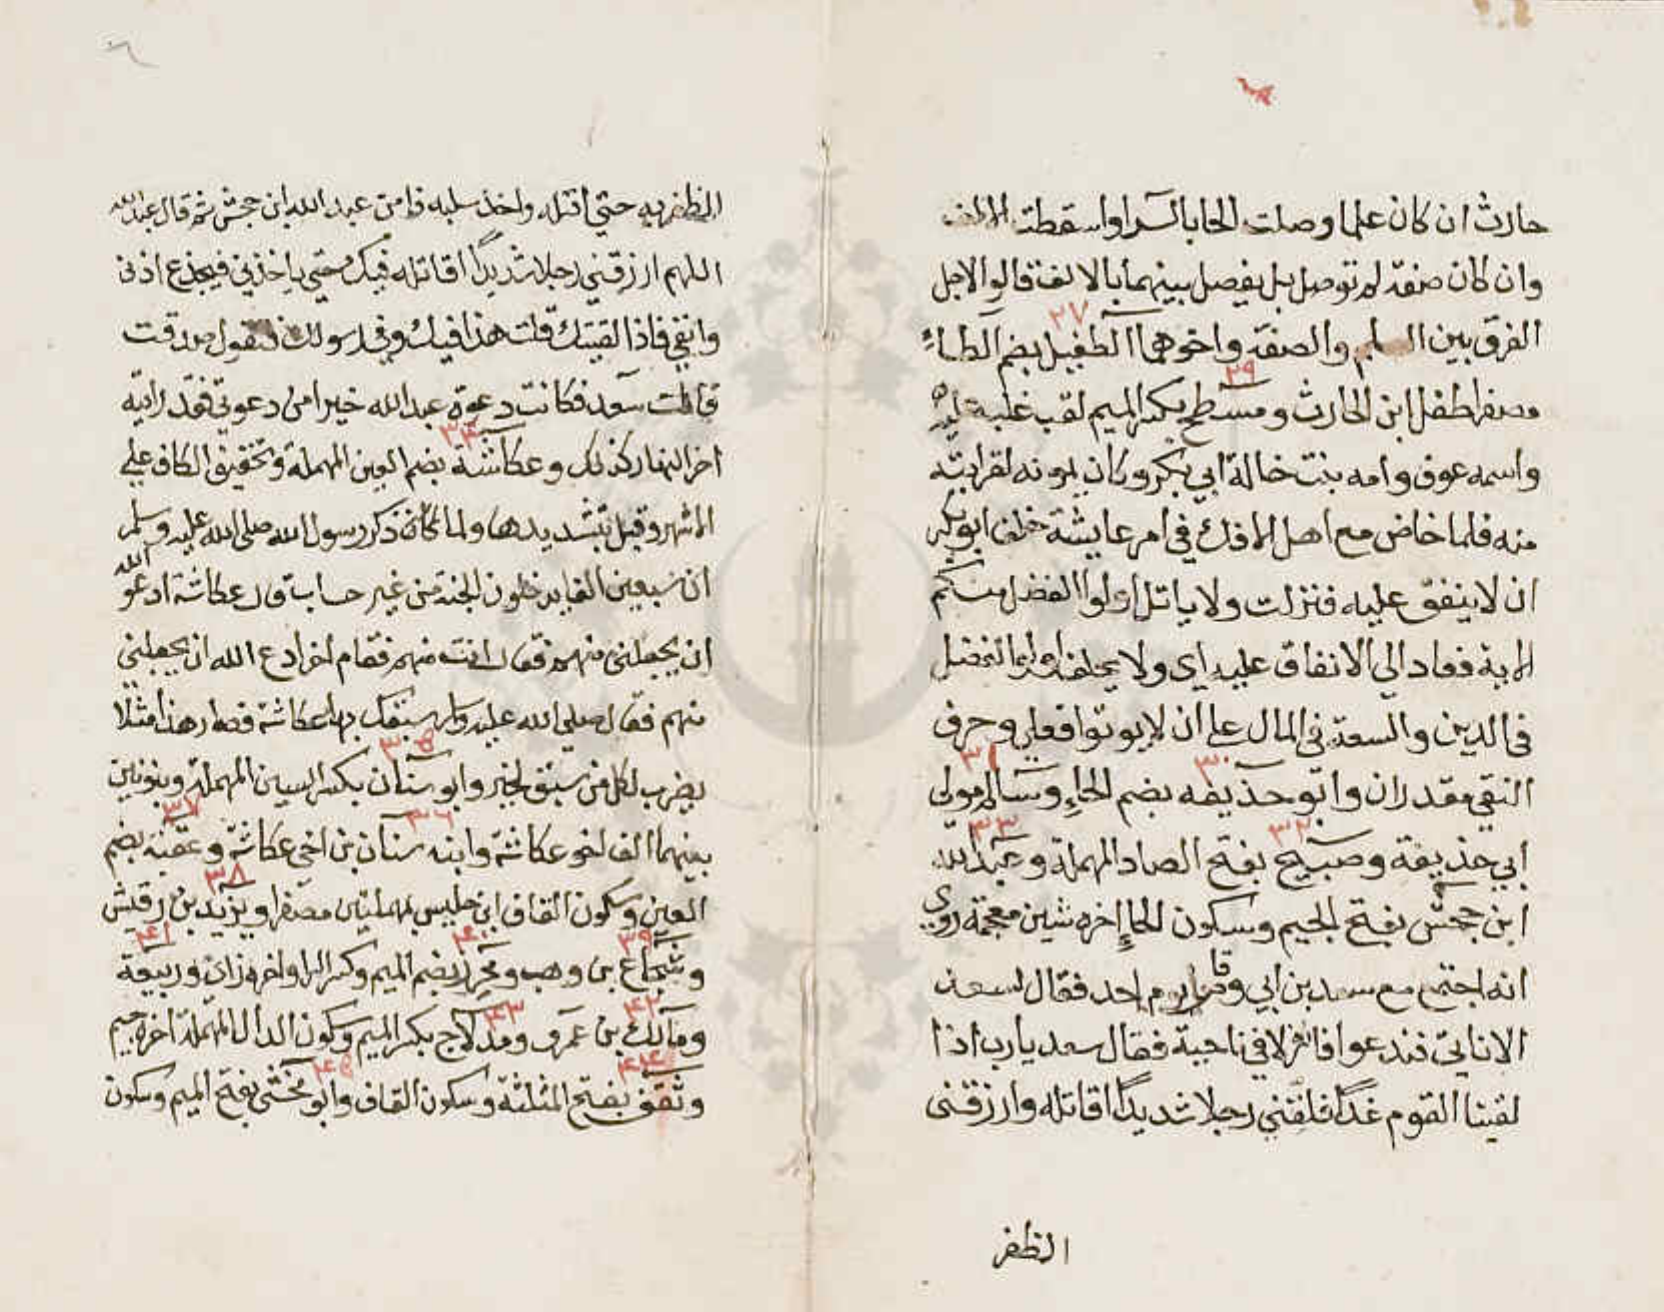 حارث ان كان علما وصلت الحا بالرا واسقطت الالف
وان كان صفة لم توصل بل يفصل بينهما بالالف قالوا لاجل
الفرق بين العلم والصفة واخوهما الطفيل بضم الطاء
٢٧
مصغرا طفل ابن الحارث ومسطح بكسر الميم لقب غلب عليه
٢٩
واسمه عوف وامه بنت خالة ابي بكر وكان يمونه لقرابته
منه فلما خاض مع اهل الافك في امر عايشة حلف ابو بكر
ان لا ينفق عليه فنزلت ولا ياتل اولوا الفضل منكم
الاية فعاد الي الانفاق عليه اي ولا يحلف اولوا الفضل
في الدين والسعة في المال علي ان لا يوتوا فعلي وحرف
النفي مقدران وابو حذيفه بضم الحاء وسالم مولي
٣٠ ٣١
ابي حذيفة وصبيح بفتح الصاد المهملة وعبد الله
٣٢ ٣٣
ابن جحش بفتح الجيم وسكون الحاء اخره شين معجمة روي
انه اجتمع مع سعد بن ابي وقاص يوم احد فقال لسعد
الا ناتي ندعوا فنزلا في ناحية فقال سعد يارب اذا
لقينا القوم غدا فلقني رجلا شديدا اقاتله وارزقني
الظفر
الظفر به حتي اقتله واخذ سلبه فامن عبد الله ابن جحش ثم قال عبد الله
اللهم ارزقني رجلا شديدا اقاتله فيك حتي ياخذني فيجدع اذني
وانفي فاذا لقيتك قلت هذا فيك وفي رسولك فتقول صدقت
قالت سعد فكانت دعوة عبد الله خيرا من دعوتي فقد رايته
اخر النهار كذلك وعكاشة بضم العين المهملة وتخفيف الكاف علي
٣٤
الاشهر وقيل بتشديدها ولما كان ذكر رسول الله صلى الله عليه وسلم
ان سبعين الفا يدخلون الجنة من غير حساب قال عكاشة ادعو الله
ان يجعلني منهم فقال انت منهم فقام اخر ادع الله ان يجعلني
منهم فقال صلي الله عليه وسلم سبقك بها عكاشة فصار هذا مثلا
يضرب لكل من سبق لخير وابو سنان بكسر السين المهملة وبنونين
٣٥
بينهما الف اخو عكاشة وابنه سنان بن اخي عكاشة وعقبة بضم
٣٦ ٣٧
العين وسكون القاف ابن حليس بمهملتين مصغرا ويزيد بن رقيش
٣٨
وشجاع بن وهب ومحرز بضم الميم وكسر الرا واخره زان وربيعة
٣٩ ٤٠ ٤١
ومالك بن عمرو ومدلاج بكسر الميم وسكون الدال المهملة اخره جيم
٤٢ ٤٣
وثقف بفتح المثلثة وسكون القاف وابو مخشي بفتح الميم وسكون
٤٤ ٤٥